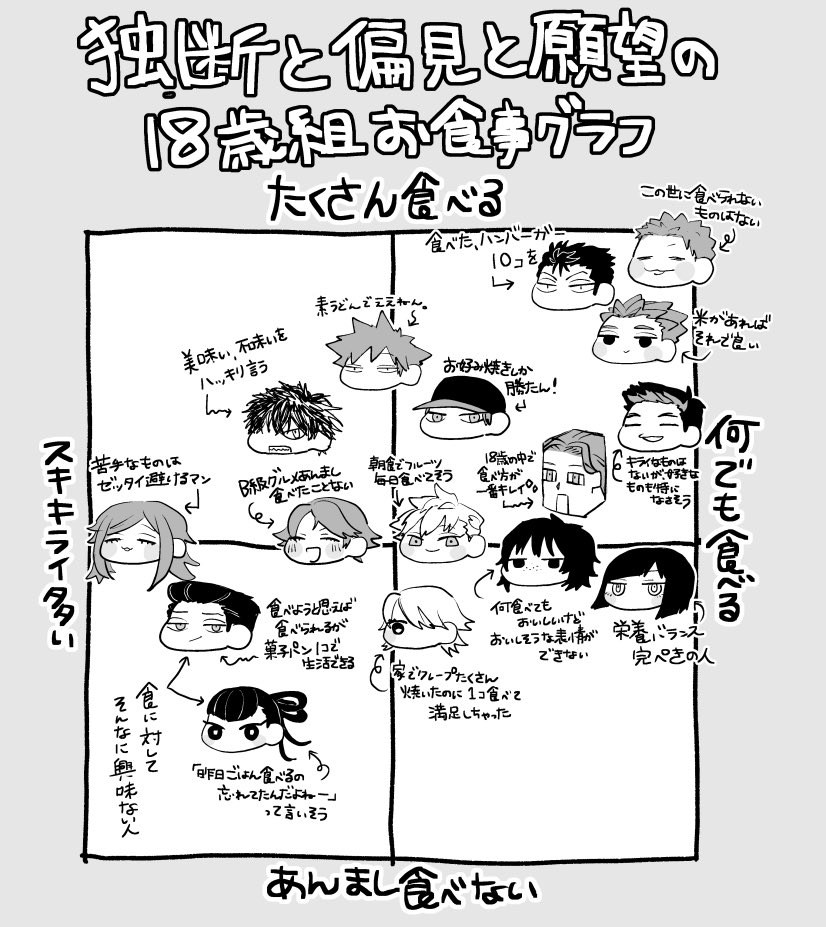 独断と偏見と願望の
18歳組お食事グラフ
たくさん食べる
この世に食べられない
ものはない
食べた、ハンバーガー
10コを
米があれば
それで良い
素うどんでええねん。
美味い、不味いを
ハッキリ言う
お好み焼きしか
勝たん!
スキキライ多い
何でも食べる
苦手なものは
ゼッタイ避けるマン
B級グルメあんまし
食べたことない
朝食でフルーツ
毎日食べてそう
18歳の中で
食べ方が
一番キレイ。
キライなものは
ないが、好きな
ものも特に
なさそう
食べようと思えば
食べられるが
菓子パン1コで
生活できる
何食べても
おいしいけど
おいしそうな表情が
できない
栄養バランス
完ぺきの人
家でクレープたくさん
焼いたのに1コ食べて
満足しちゃった
食に対して
そんなに興味ない人
「昨日ごはん食べるの
忘れてたんだよねー」
って言いそう
あんまし食べない